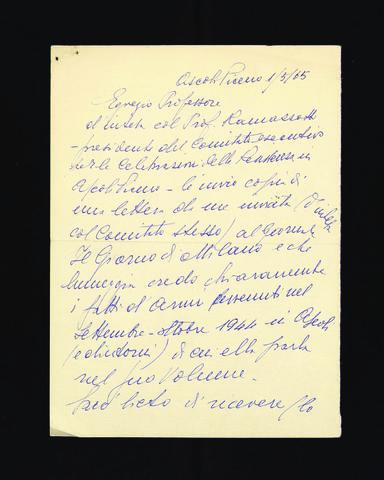 Ascoli Piceno 1/3/65
Egregio Professore
d'intesa col Prof. Ramassotti
- presidente del Comitato esecutivo
per le Celebrazioni della Resistenza in
Ascoli Piceno - le invio copia di
una lettera da me inviata (d'intesa
col Comitato stesso) al Corriere
Il Giorno di Milano e che
lumeggia credo chiaramente
i fatti d'armi avvenuti nel
Settembre - ottobre 1944 in Ascoli
(e dintorni) di cui ella parla
nel suo Volume -
Sarò lieto di ricevere